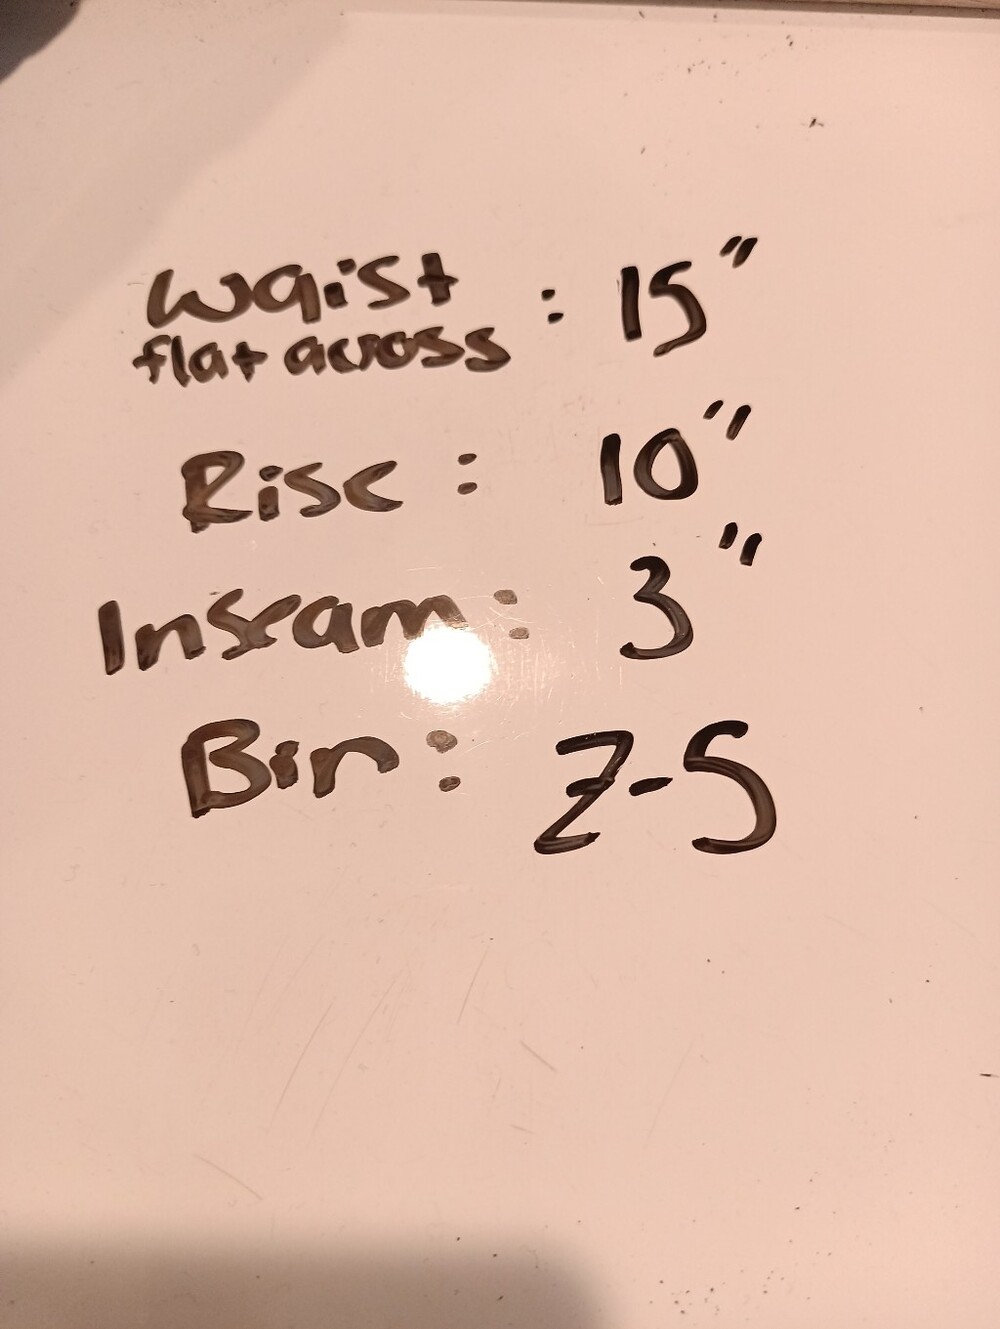 Waist : 15"
flat across
Rise : 10"
Inseam : 3"
Bin : Z-S